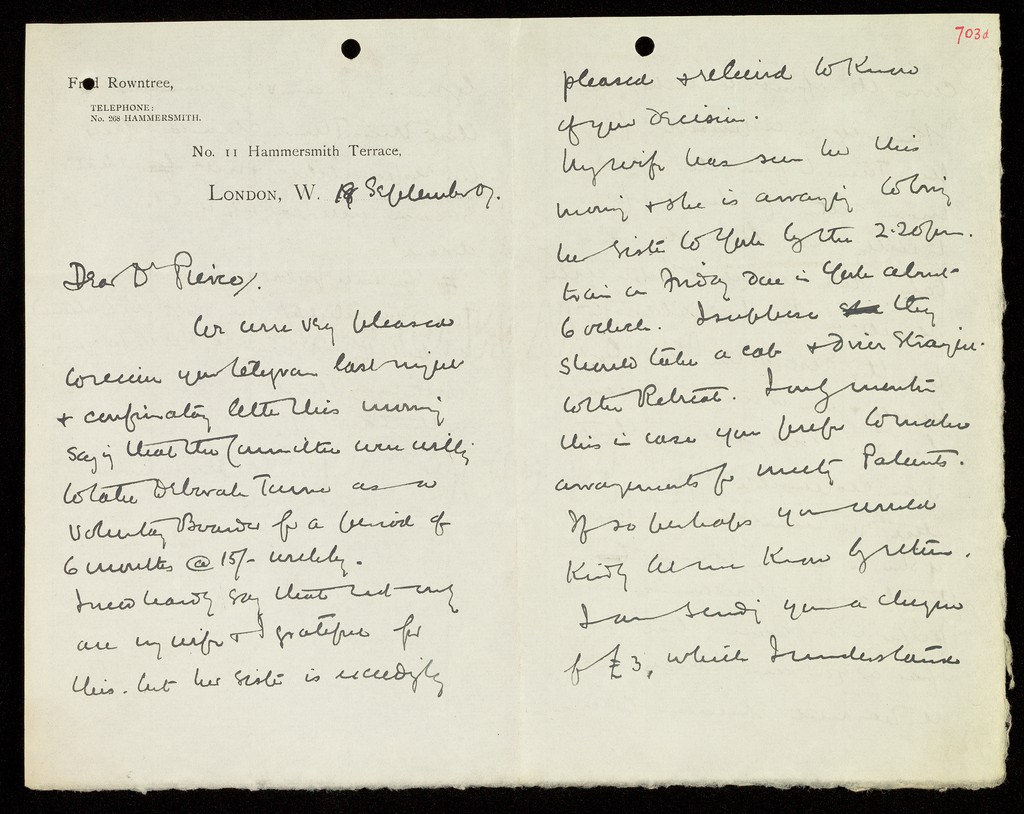 Fred Rowntree,
TELEPHONE:
No. 268 HAMMERSMITH.
No. 11 Hammersmith Terrace,
LONDON, W. 18 September 07.
Dear Dr Pierce,
We were very pleased
to receive your telegram last night
& confirmatory letter this morning
saying that the Committee were willing
to take Deborah Turner as a
Voluntary Boarder for a period of
6 months @ 15/- weekly.
I need hardly say that not only
are my wife & I grateful for
this. but her sister is exceedingly
703d
pleased & relieved to know
of your decision.
My wife has seen her this
morning & she is arranging to bring
her sister to York by the 2.20 pm.
train on Friday due in York about
6 oclock. I suppose they
should take a cab & drive straight
to the Retreat. I only mention
this in case you prefer to make
arrangements for meeting Patients.
If so perhaps you would
Kindly let me Know by return.
I am sending you a cheque
for £3, which I understand